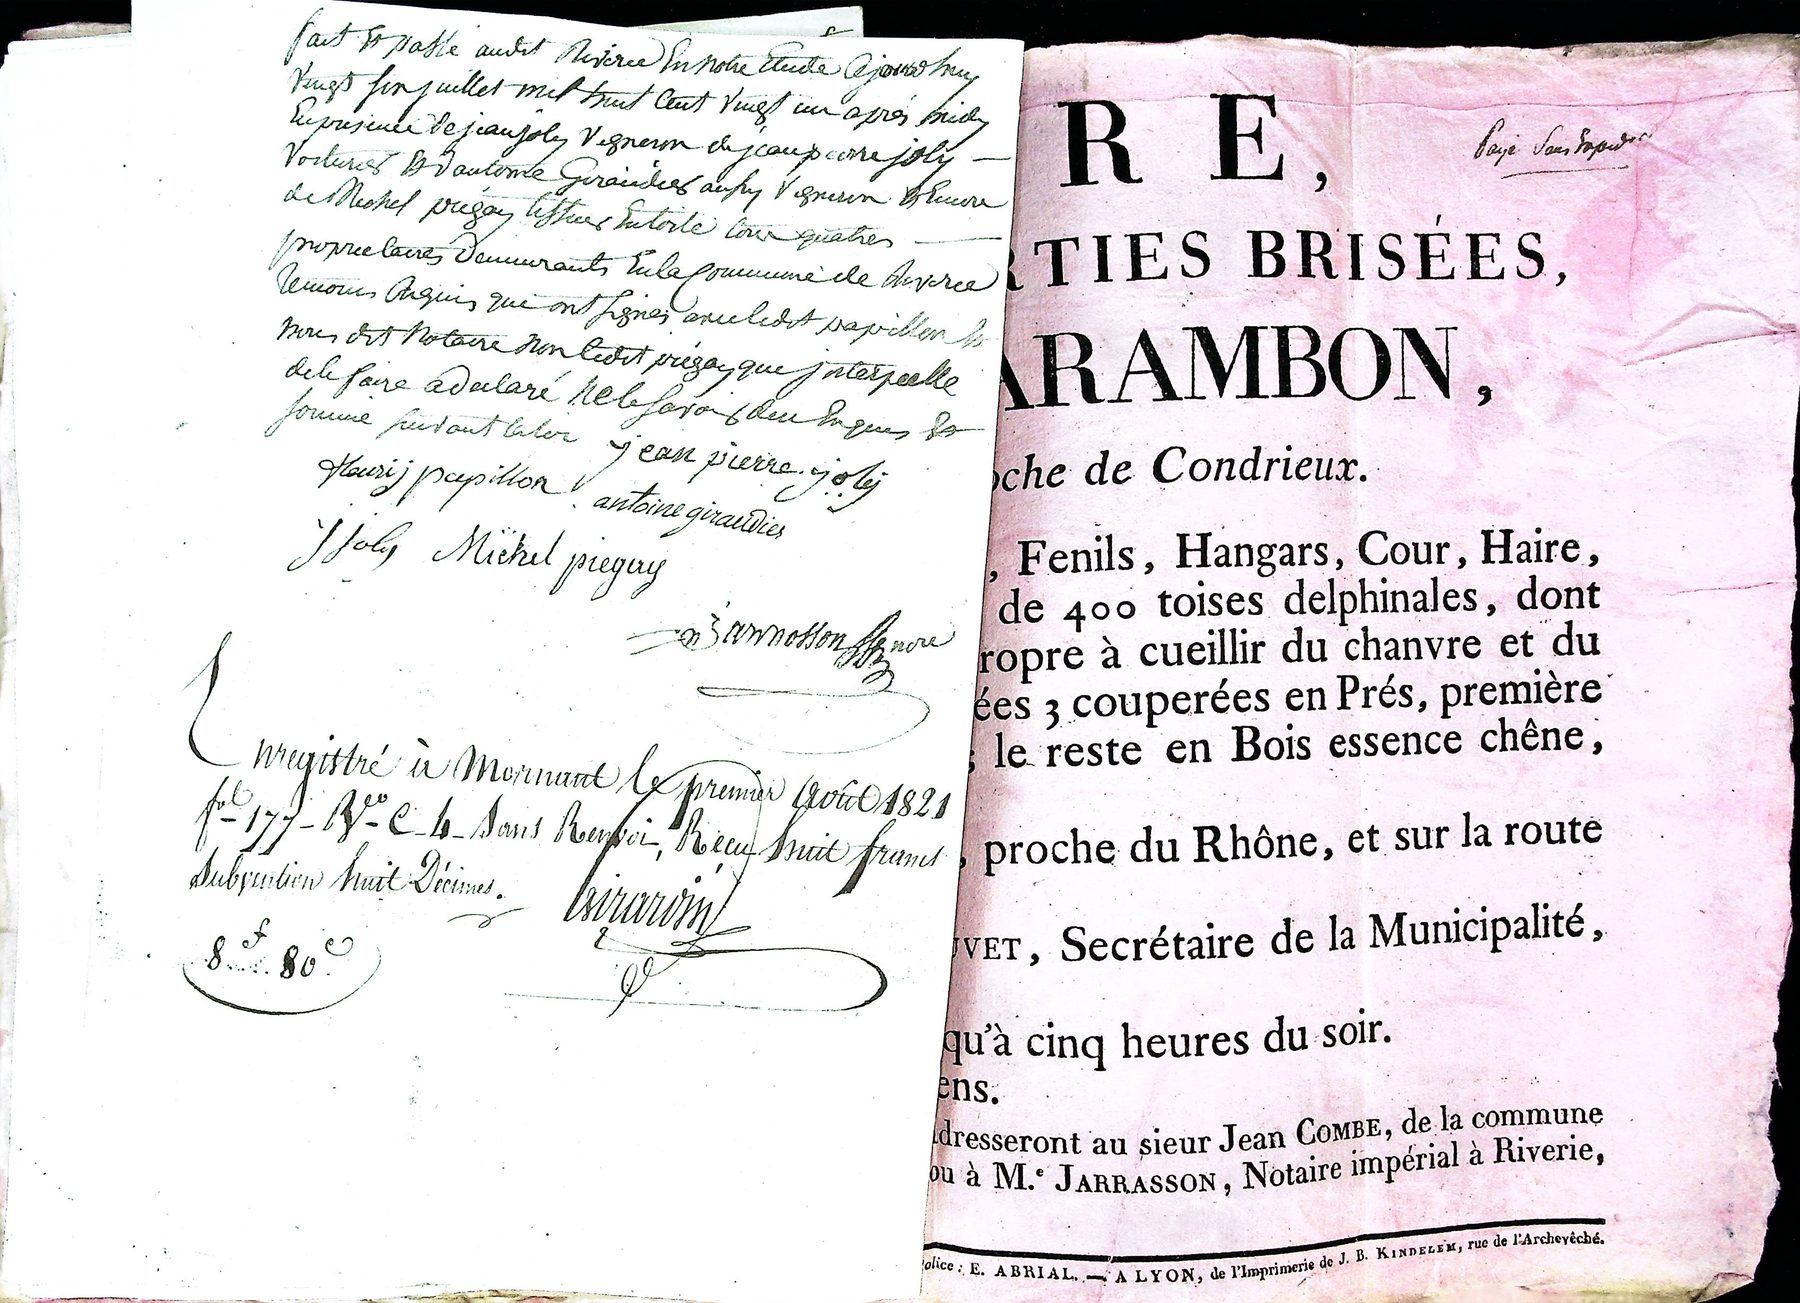 fait et passé audit Riverie En notre Etude Cejourdhuy
Vingt six juillet mil huit Cent Vingt un après midy
En presence de jean joly Vigneron de jean pierre joly
voitures et d'antoine Giraudier aussy Vigneron et Encore
de Michel piégay tissier En toile tous quatres
proprietaires Demeurants En la Commune de Riverie
temoins Requis qui ont signés avec ledit papillon et
nous dit Notaire non ledit piégay que interpellé
de le faire a declaré ne le savoir deu Enquis et
sommé suivant la loi
jean pierre joly
fleurij papillon
antoine giraudier
J joly Mïchel piegay
Jarrosson Nore
Enregistré à Mornant le premier Août 1821
fol 177 Ro C 4 Sans Renvoi, Reçu huit francs
Subvention huit Décimes.
Girardin
8f 80c
RE,
Payé
RTIES BRISÉES,
ARAMBON,
oche de Condrieux.
, Fenils, Hangars, Cour, Haire,
de 400 toises delphinales, dont
ropre à cueillir du chanvre et du
ées 3 couperées en Prés, première
; le reste en Bois essence chêne,
, proche du Rhône, et sur la route
UVET, Secrétaire de la Municipalité,
qu'à cinq heures du soir.
ens.
adresseront au sieur Jean COMBE, de la commune
ou à M.e JARRASSON, Notaire impérial à Riverie,
olice : E. ABRIAL. — A LYON, de l'Imprimerie de J. B. KINDELEM, rue de l'Archevêché.